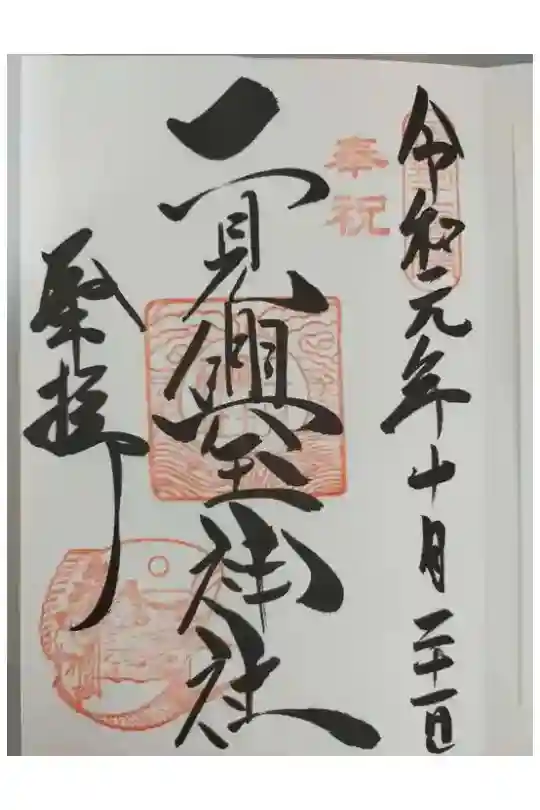 令和元年十月二十一日
奉祝
二見興玉神社
拝